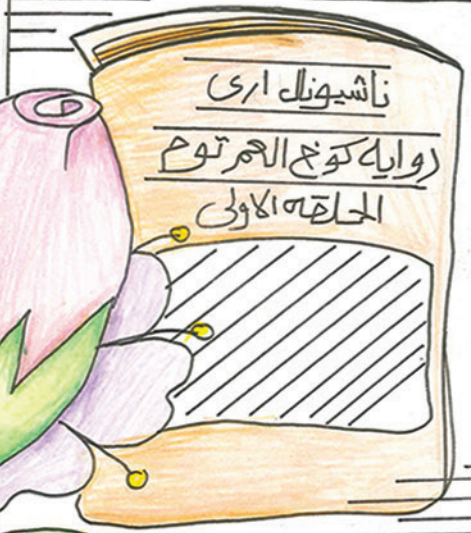 ناشيونال اري
روايه كوخ العم توم
الحلقه الاولى